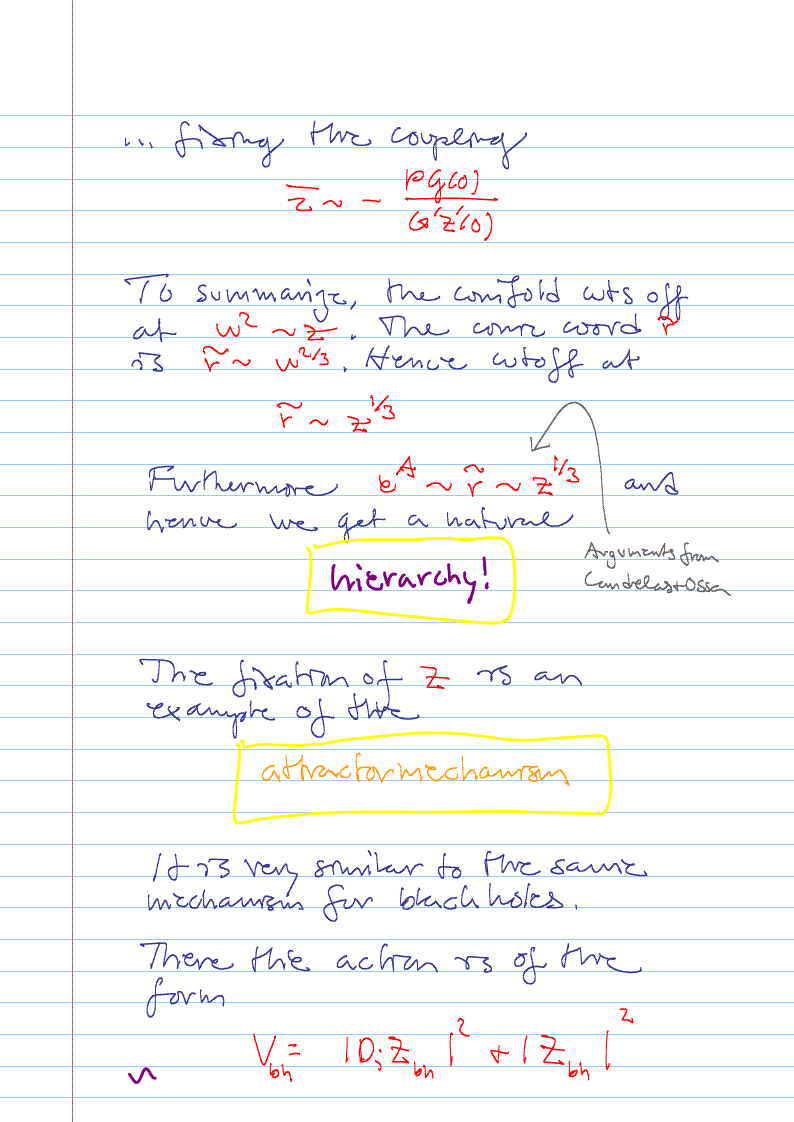 ... fixing the coupling
z̄ ~ - ρG(0) / G'z'(0)
To summarize, the conifold cuts off
at w² ~ z. The conic coord r̃
is r̃ ~ w^2/3. Hence cutoff at
r̃ ~ z^1/3
Furthermore e^A ~ r̃ ~ z^1/3 and
hence we get a natural
hierarchy!
Arguments from
Candelas + Ossa
The fixation of z is an
example of the
attractor mechanism
It is very similar to the same
mechanism for black holes.
There the action is of the
form
V_bh = |D_i Z_bh|² + |Z_bh|²